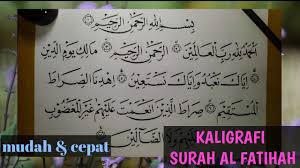 بِسْمِ اللهِ الرَّحْمٰنِ الرَّحِيْمِ
الْحَمْدُ لِلّٰهِ رَبِّ الْعَالَمِيْنَ ۞ الرَّحْمٰنِ الرَّحِيْمِ ۞ مَالِكِ يَوْمِ الدِّيْنِ
۞ إِيَّاكَ نَعْبُدُ وَإِيَّاكَ نَسْتَعِيْنُ ۞ اِهْدِنَا الصِّرَاطَ
الْمُسْتَقِيْمَ ۞ صِرَاطَ الَّذِيْنَ أَنْعَمْتَ عَلَيْهِمْ غَيْرِ الْمَغْضُوْبِ
عَلَيْهِمْ وَلَا الضَّالِّيْنَ
mudah & cepat
KALIGRAFI
SURAH AL FATIHAH